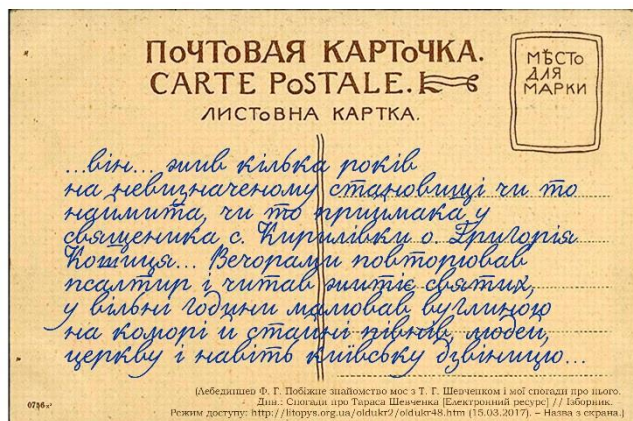 ПОЧТОВАЯ КАРТОЧКА.
CARTE POSTALE.
ЛИСТОВНА КАРТКА.
МѢСТО
ДЛЯ
МАРКИ
...він... жив кілька років
на невизначеному становищі чи то
наймита, чи то приймака у
священика с. Кирилівки о. Григорія
Кошиця... Вечорами повторював
псалтир і читав житіє святих,
у вільні години малював вуглиною
на коморі й стайні півнів, людей,
церкву і навіть київську дзвіницю...
(Лебединцев Ф. Г. Побіжне знайомство моє з Т. Г. Шевченком і мої спогади про нього.
Див.: Спогади про Тараса Шевченка [Електронний ресурс] // Ізборник.
Режим доступу: http://litopys.org.ua/oldukr2/oldukr48.htm (15.03.2017). – Назва з екрана.)